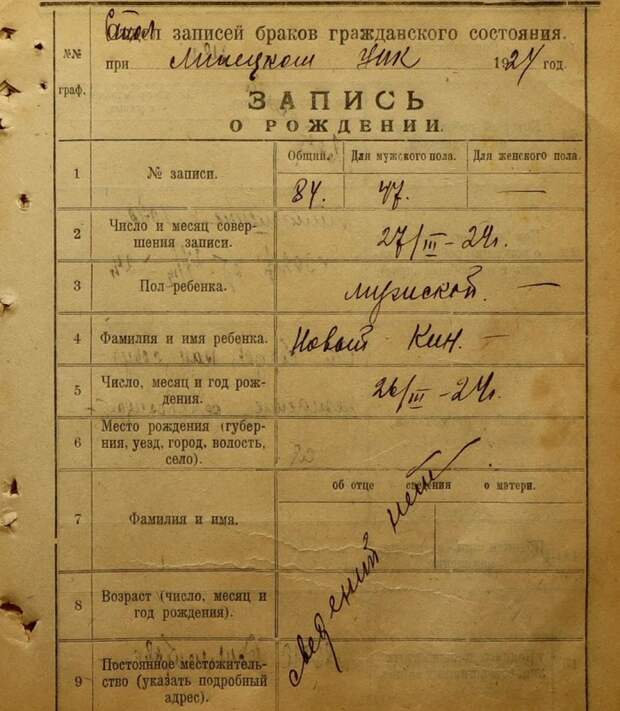 Отдел записей браков гражданского состояния.
при Липецком УИК 1924 год.
№№ граф.
ЗАПИСЬ
О РОЖДЕНИИ.
Общий. Для мужского пола. Для женского пола.
1 № записи. 84. 47. —
2 Число и месяц совер-
шения записи. 27/III – 24г.
3 Пол ребенка. мужской. —
4 Фамилия и имя ребенка. Новый Ким. —
5 Число, месяц и год рож-
дения. 26/III – 24г.
6 Место рождения (губер-
ния, уезд, город, волость,
село).
об отце сведения о матери.
7 Фамилия и имя.
сведений нет
8 Возраст (число, месяц и
год рождения).
9 Постоянное местожитель-
ство (указать подробный
адрес).